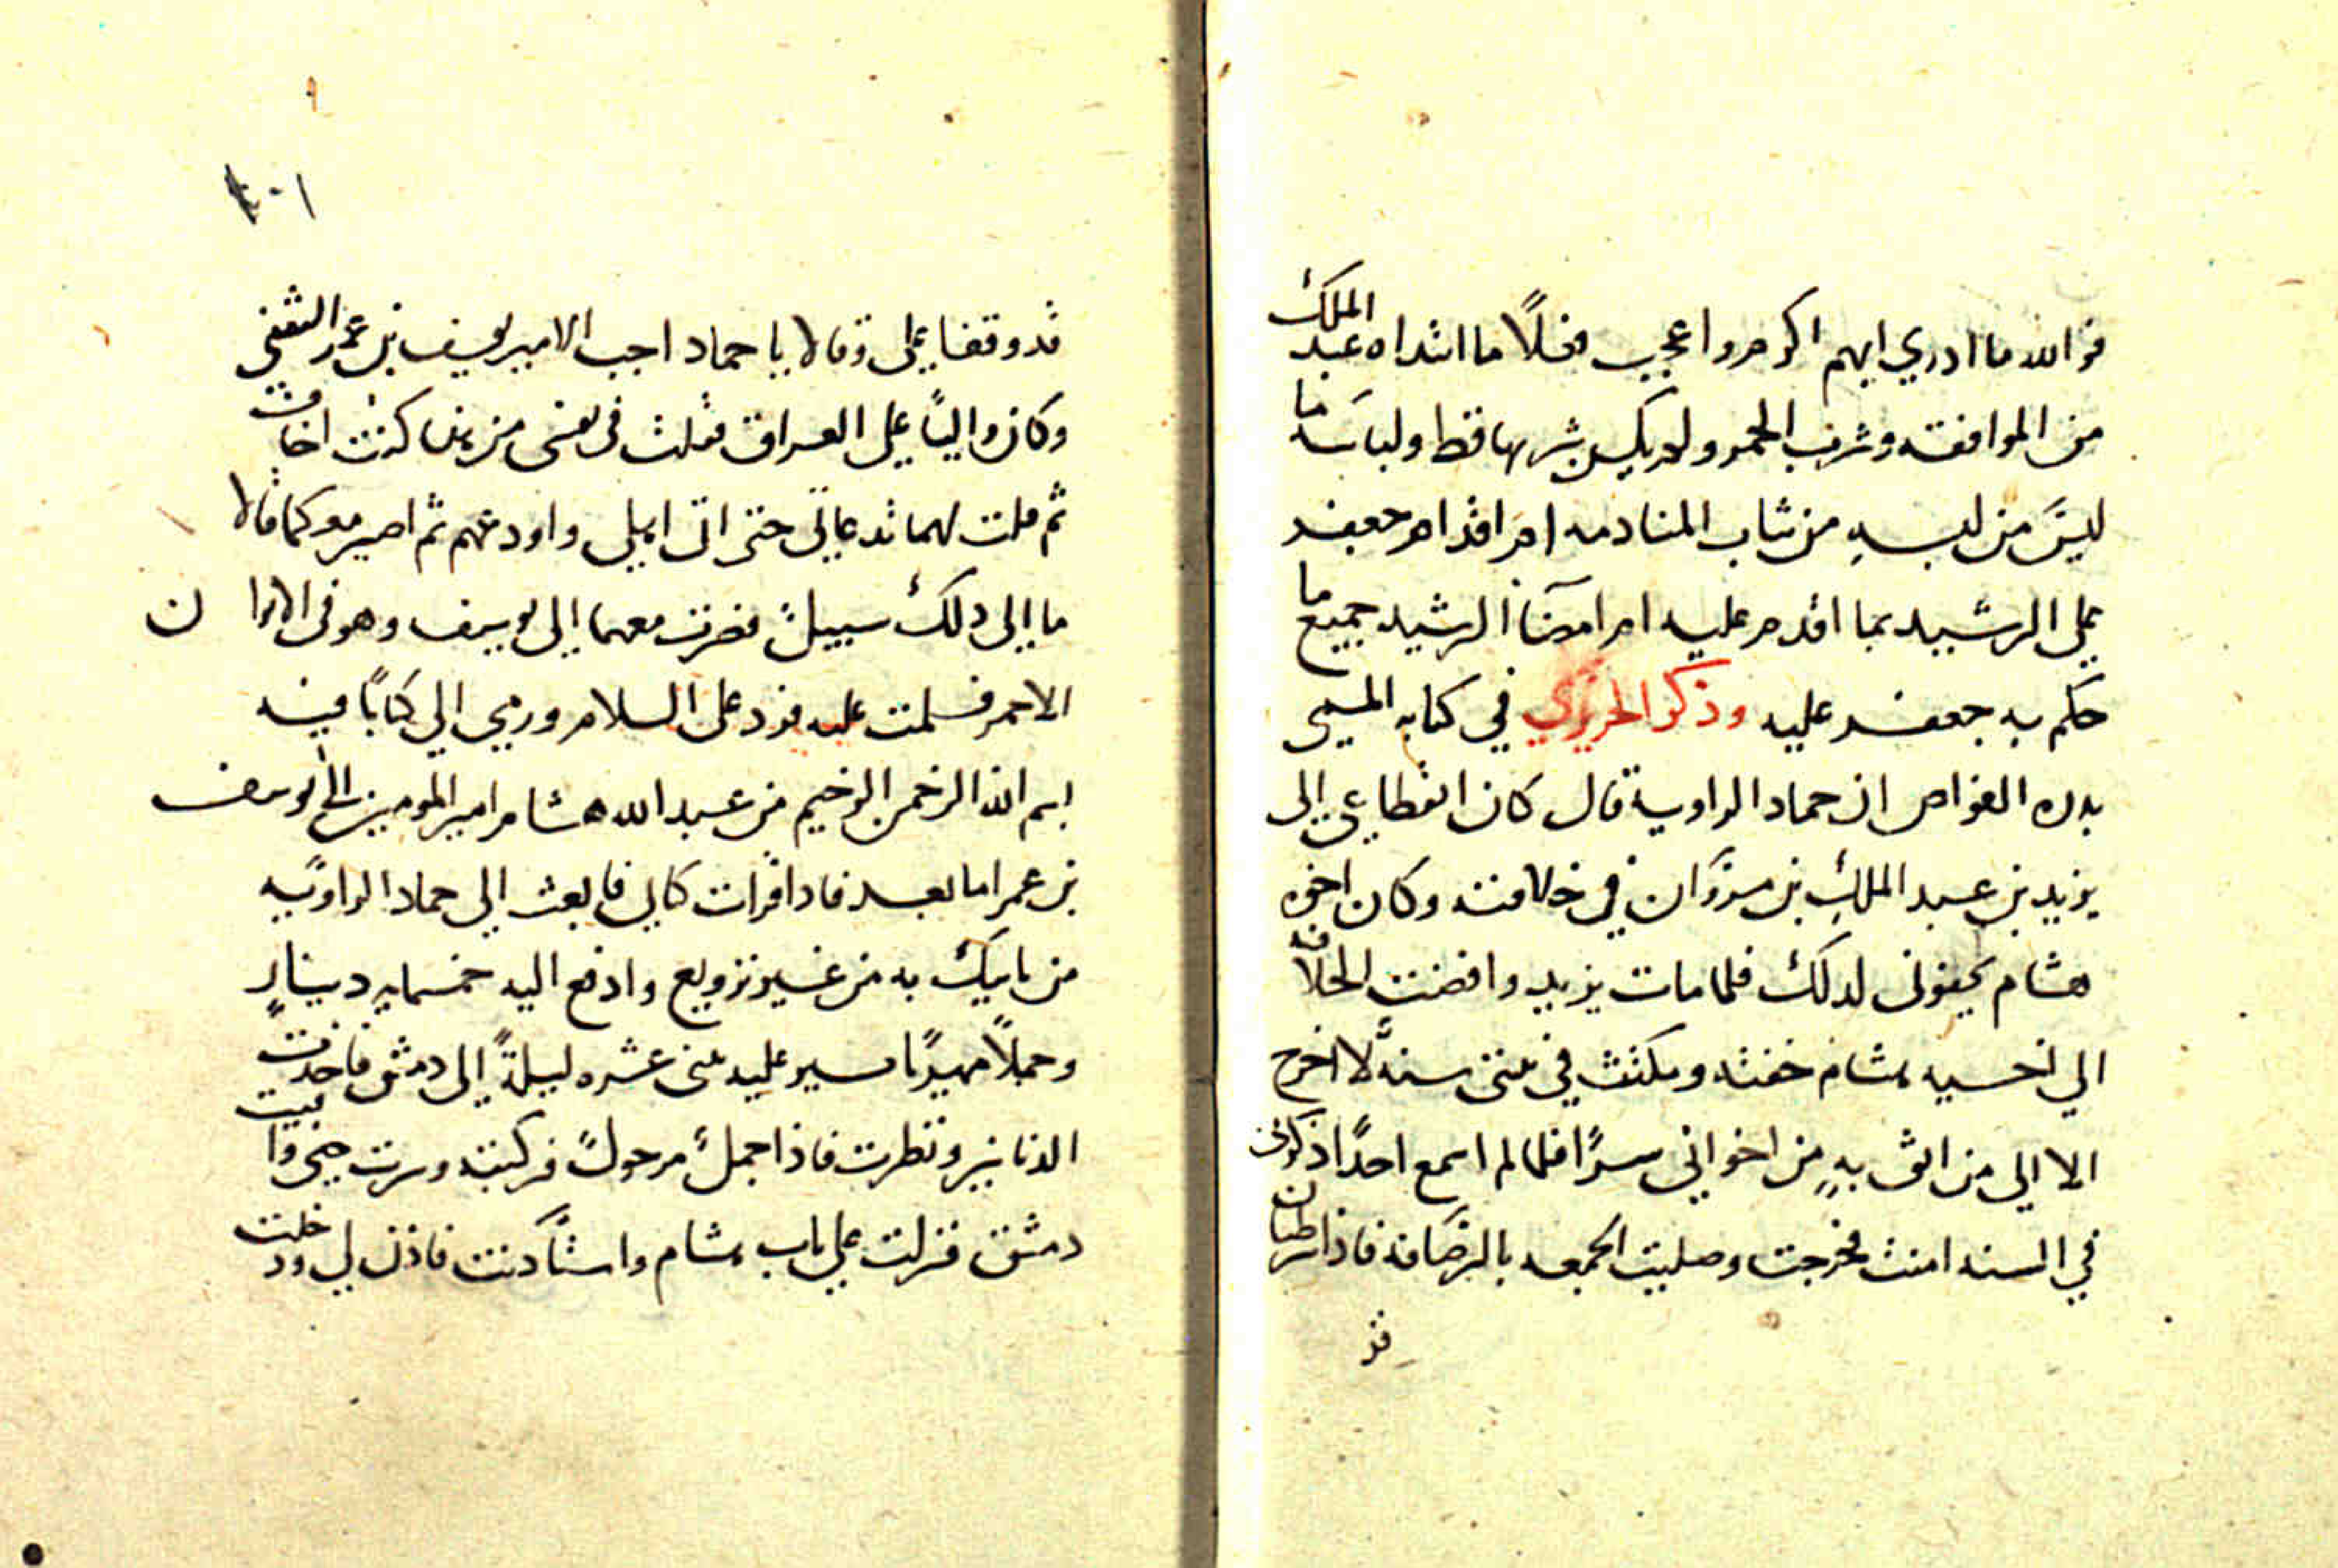 فوالله ما ادري ايهم اكرم واعجب فعلًا ما ابتداه عبد الملك
من الموافقه وشرب الخمر ولم يكن شربها قط ولباسه ما
ليس من لبسهِ من ثياب المنادمه ام اقدام جعفر
على الرشيد بما اقدم عليه ام امضآ الرشيد جميع ما
حكم به جعفر عليه وذكر الحريري في كتابه المسمى
بدره الغواص ان حماد الراوية قال كان انقطاعي الى
يزيد بن عبد الملك بن مروان في خلافته وكان اخوه
هشام يجفونى لدلك فلما مات يزيد وافضت الخلافه
الي اخيه هشام خفته ومكثت في بيتى سنةً لا اخرج
الا الي من اثق بهِ من اخواني سرًا فلما لم اسمع احدًا ذكرنى
في السنه امنت فخرجت وصليت الجمعه بالرصافه فاذا شرطيان
قد
قد وقفا على وقالا يا حماد اجب الامير يوسف بن عمر الثقفي
وكان واليًا على العراق فقلت في نفسى من هذا كنت اخاف
ثم قلت لهما تدعانى حتى اتى اهلى واودعهم ثم اصير معكما قالا
ما الى دلك سبيلٌ فصرت معهما الى يوسف وهو فى الايوان
الاحمر فسلمت عليه فرد على السلام ورمى الي كتابًا فيه
بسم الله الرحمن الرحيم من عبد الله هشام امير المومنين الى يوسف
بن عمر اما بعد فادا قرات كتابى فابعث الى حماد الراوية
من ياتيك به من غير ترويع وادفع اليه خمسمايه دينارٍ
وجملًا مهريًا يسير عليه اثنى عشره ليلةً الى دمشق فاخدت
الدنانير ونظرت فاذا جملٌ مرحولٌ فركبته وسرت حتى وافيت
دمشق فنزلت على باب هشام واستأدنت فاذن لي ودخلت